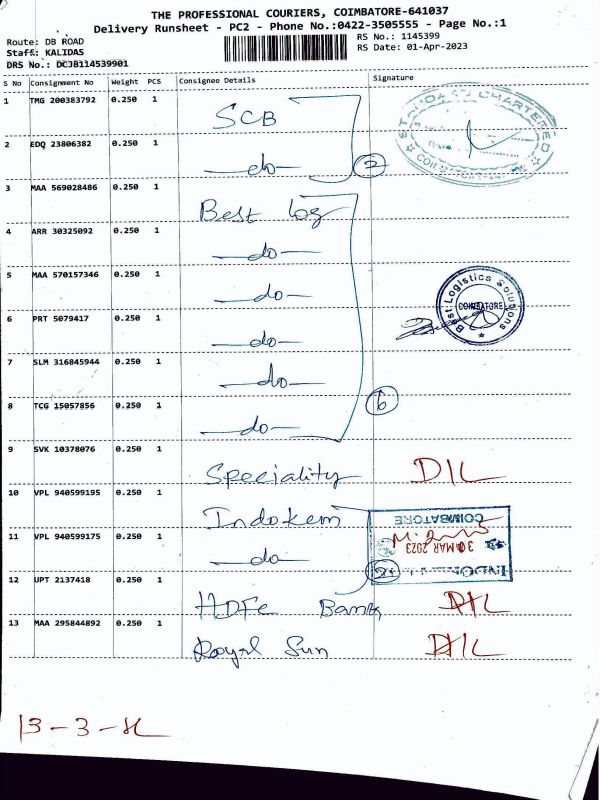 THE PROFESSIONAL COURIERS, COIMBATORE-641037
Delivery Runsheet - PC2 - Phone No.:0422-3505555 - Page No.:1
Route: DB ROAD
RS No.: 1145399
Staff: KALIDAS
RS Date: 01-Apr-2023
DRS No.: DCJB114539901
S No Consignment No Weight PCS Consignee Details Signature
1 TMG 200383792 0.250 1 SCB
STANDARD CHARTERED
2 EDQ 23806382 0.250 1 —do—
2
3 MAA 569028486 0.250 1 Best Log
4 ARR 30325092 0.250 1 —do—
5 MAA 570157346 0.250 1 —do—
Best Logistics Solutions
COIMBATORE
6 PRT 5079417 0.250 1 —do—
7 SLM 316845944 0.250 1 —do—
8 TCG 15057856 0.250 1 —do—
6
9 SVK 10378076 0.250 1 Speciality DIL
10 VPL 940599195 0.250 1 Indokem
COIMBATORE
11 VPL 940599175 0.250 1 —do—
MAR 2023
12 UPT 2137418 0.250 1 HDFC Bank DIL
13 MAA 295844892 0.250 1 Royal Sun DIL